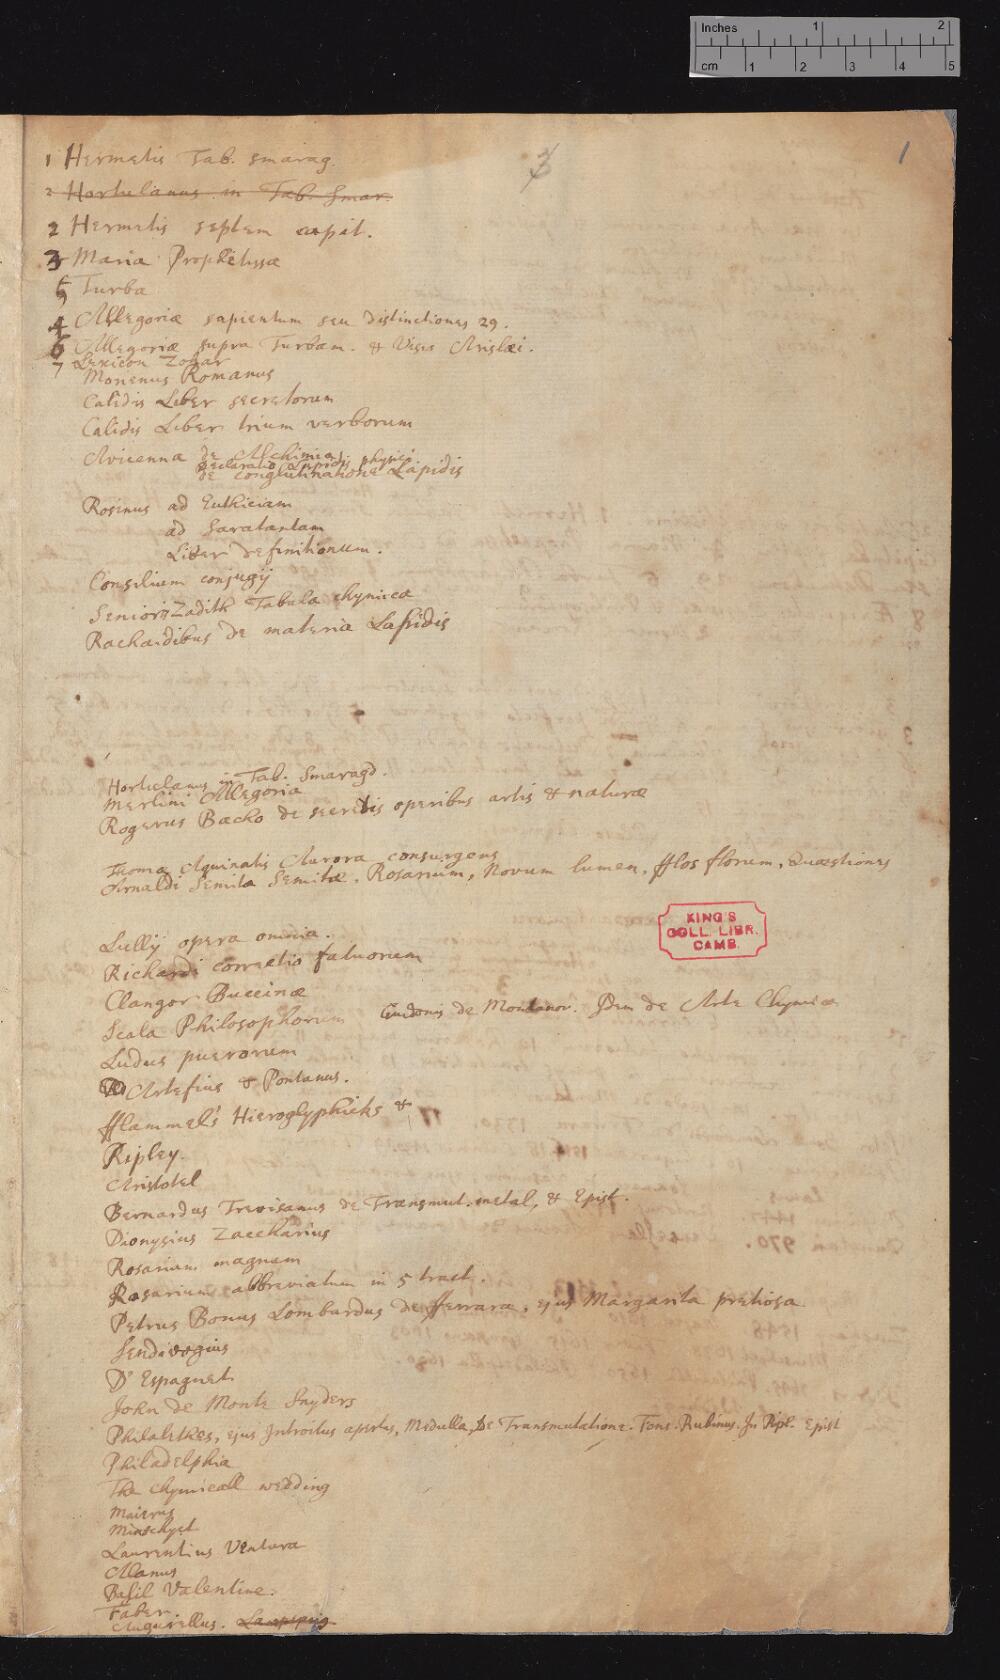 Inches 1 2
cm 1 2 3 4 5
1
3
1 Hermetis Tab. smarag.
2 Hortulanus in Tab. Smar.
2 Hermetis septem capit.
3 Maria Prophetissæ
5 Turba
4 Allegoriæ sapientum seu distinctiones 29.
6 Allegoriæ supra Turbam. & Visis Arislæi.
7 Lexicon Zohar
Morienus Romanus
Calidis Liber secretorum
Calidis Liber trium verborum
Avicenna de Alchimia
Declaratio Lapidis physici
de conglutinatione Lapidis
Rosinus ad Euthiciam
ad Saratantam
Liber definitionum.
Consilium conjugij
Senioris Zadith Tabula chymica
Rachaidibus de materia Lapidis
Hortulanus in Tab. Smaragd.
Merlini Allegoria
Rogerus Bacho de secretis operibus artis & naturæ
Thomæ Aquinatis Aurora consurgens
Arnaldi Semita Semitæ. Rosarium, Novum lumen, fflos florum, Quæstiones
KING'S
COLL. LIBR.
CAMB.
Lullij opera omnia.
Richardi correctio fatuorum
Clangor Buccinæ
Scala Philosophorum Guidonis de Montanor. Idem de Arte Chymica
Ludus puerorum
Artefius & Pontanus.
fflammel's Hieroglyphicks &
Ripley.
Aristotel
Bernardus Trevisanus de Transmut. metal, & Epist.
Dionysius Zaccharius
Rosarium magnum
Rosarium abbreviatum in 5 tract.
Petrus Bonus Lombardus de fferrara, ejus Margarita pretiosa
Sendivogius
D'Espagnet
John de Monte Snyders
Philalethes, ejus Introitus apertus, Medulla, De Transmutatione. Fons. Rubinus. In Ripl. Epist
Philadelphia
The chymicall wedding
Maierus
Minschyct
Laurentius Ventura
Alanus
Basil Valentine.
Faber
Augurellus.